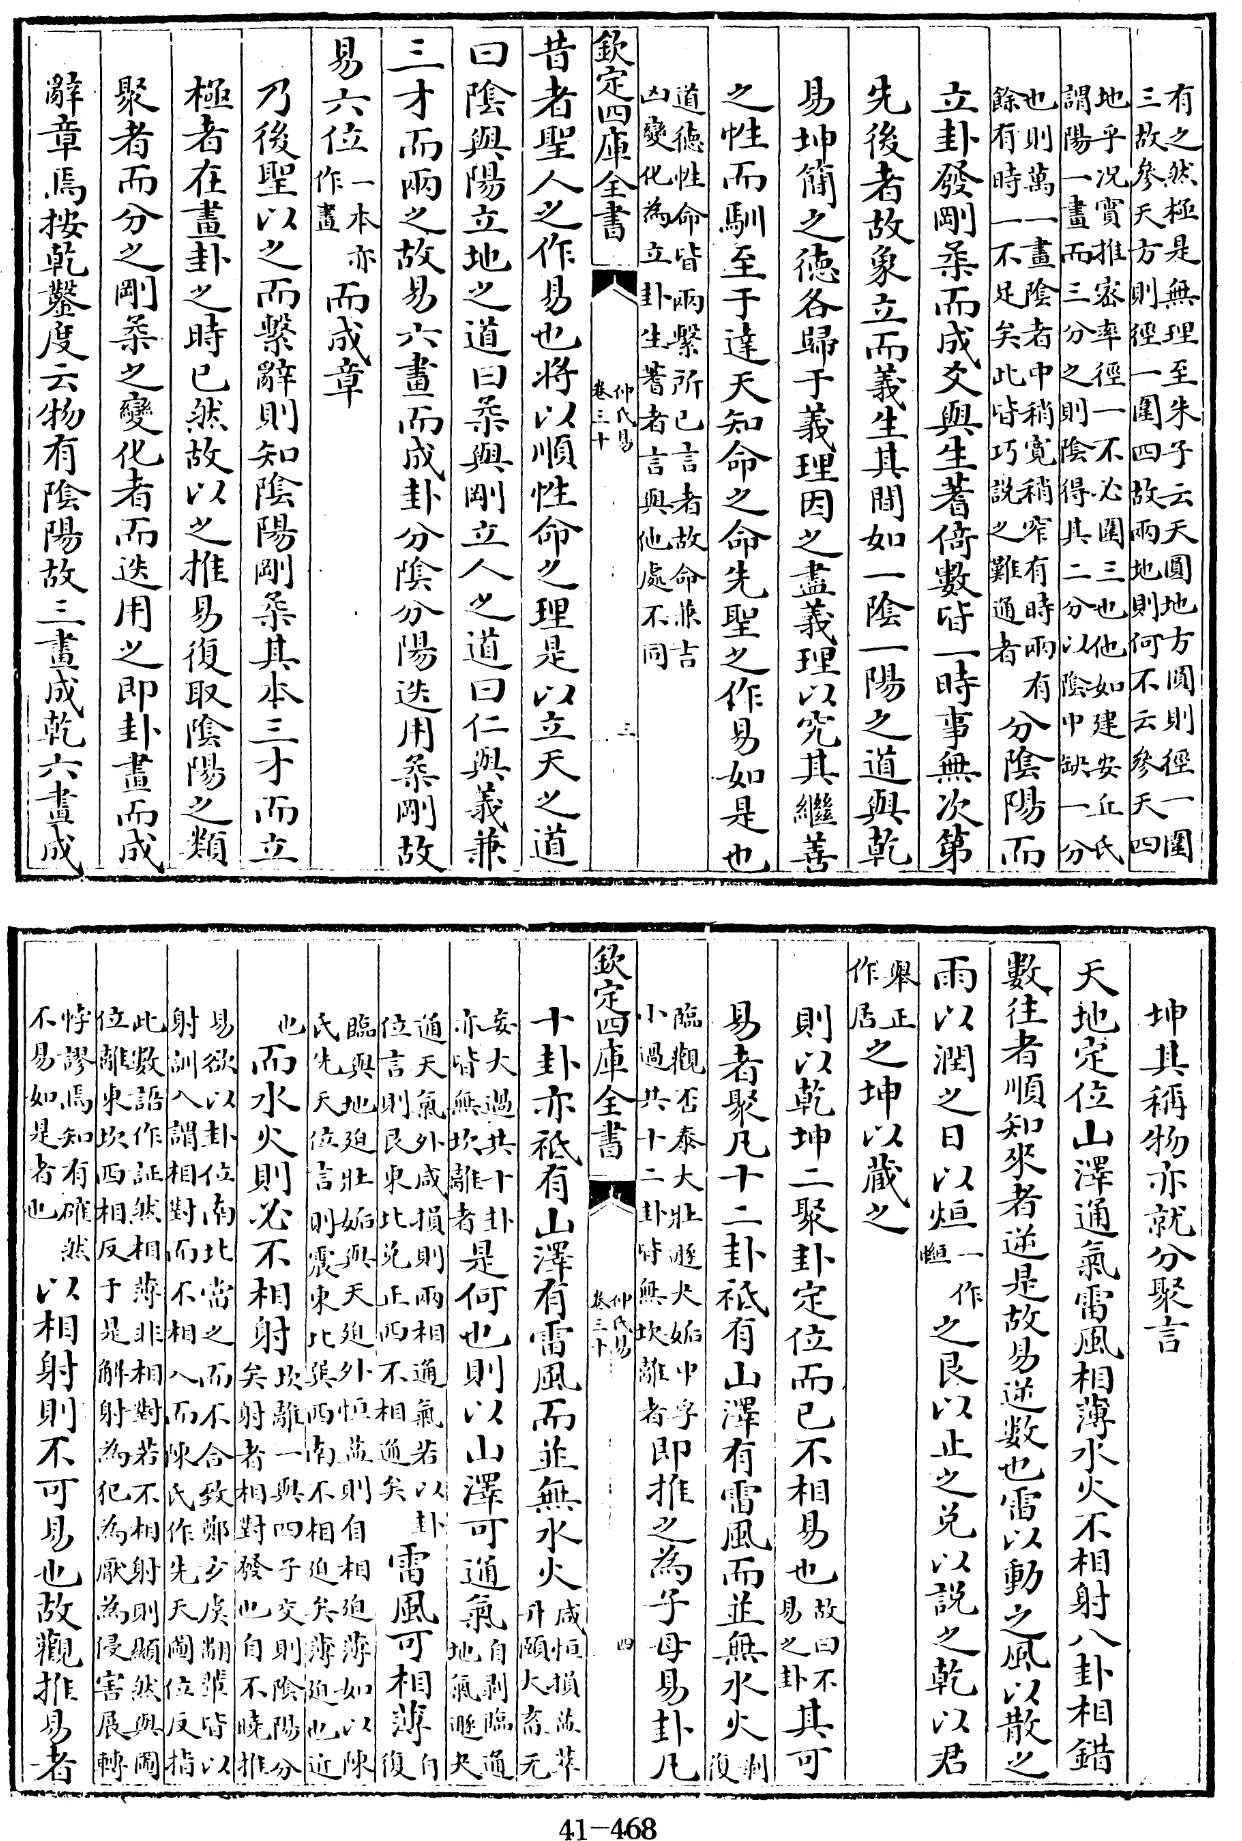 有之然極是無理至朱子云天圓地方圓則徑一圍
三故參天方則徑一圍四故兩地則何不云參天四
地乎况實推密率徑一不必圍三也他如建安丘氏
謂陽一畫而三分之則陰得其二分以陰中缺一分
也則萬一畫陰者中稍寛稍窄有時兩有
餘有時一不足矣此皆巧說之難通者
分陰陽而
立卦發剛柔而成爻與生蓍倚數皆一時事無次第
先後者故象立而義生其間如一陰一陽之道與乾
易坤簡之徳各歸于義理因之盡義理以究其繼善
之性而馴至于達天知命之命先聖之作易如是也
道德性命皆兩繫所已言者故命兼吉
凶變化為立卦生蓍者言與他處不同
欽定四庫全書
仲氏易
卷三十
三
昔者聖人之作易也將以順性命之理是以立天之道
曰陰與陽立地之道曰柔與剛立人之道曰仁與義兼
三才而兩之故易六畫而成卦分陰分陽迭用柔剛故
易六位一本亦作畫而成章
乃後聖以之而繫辭則知陰陽剛柔其本三才而立
極者在畫卦之時已然故以之推易復取陰陽之類
聚者而分之剛柔之變化者而迭用之即卦畫而成
辭章焉按乾鑿度云物有陰陽故三畫成乾六畫成
坤其稱物亦就分聚言
天地定位山澤通氣雷風相薄水火不相射八卦相錯
數往者順知來者逆是故易逆數也雷以動之風以散之
雨以潤之日以烜一作晅之艮以止之兌以說之乾以君
舉正作居之坤以藏之
則以乾坤二聚卦定位而已不相易也故曰不易之卦其可
易者聚凡十二卦祗有山澤有雷風而並無水火剝復
臨觀否泰大壯遯夬姤中孚
小過共十二卦皆無坎離者
即推之為子母易卦凡
欽定四庫全書
仲氏易
卷三十
四
十卦亦祗有山澤有雷風而並無水火咸恒損益萃
升頤大畜无
妄大過共十卦
亦皆無坎離者
是何也則以山澤可通氣自剝臨通
地氣遯夬
通天氣外咸損則兩相通氣若以卦
位言則艮東北兌正西不相通矣
雷風可相薄自復
臨與地廹壯姤與天廹外恒益則自相廹薄如以陳
氏先天位言則震東北巽西南不相廹矣薄廹也近
也
而水火則必不相射坎離一與四子交則陰陽分
矣射者相對發也自不曉推
易欲以卦位南北當之而不合致鄭玄虞翻輩皆以
射訓入謂相對而不相入而陳氏作先天圖位反指
此數語作証然相薄非相對若不相射則顯然與圖
位離東坎西相反于是解射為犯為厭為侵害展轉
悖謬焉知有確然
不易如是者也
以相射則不可易也故觀推易者
41-468